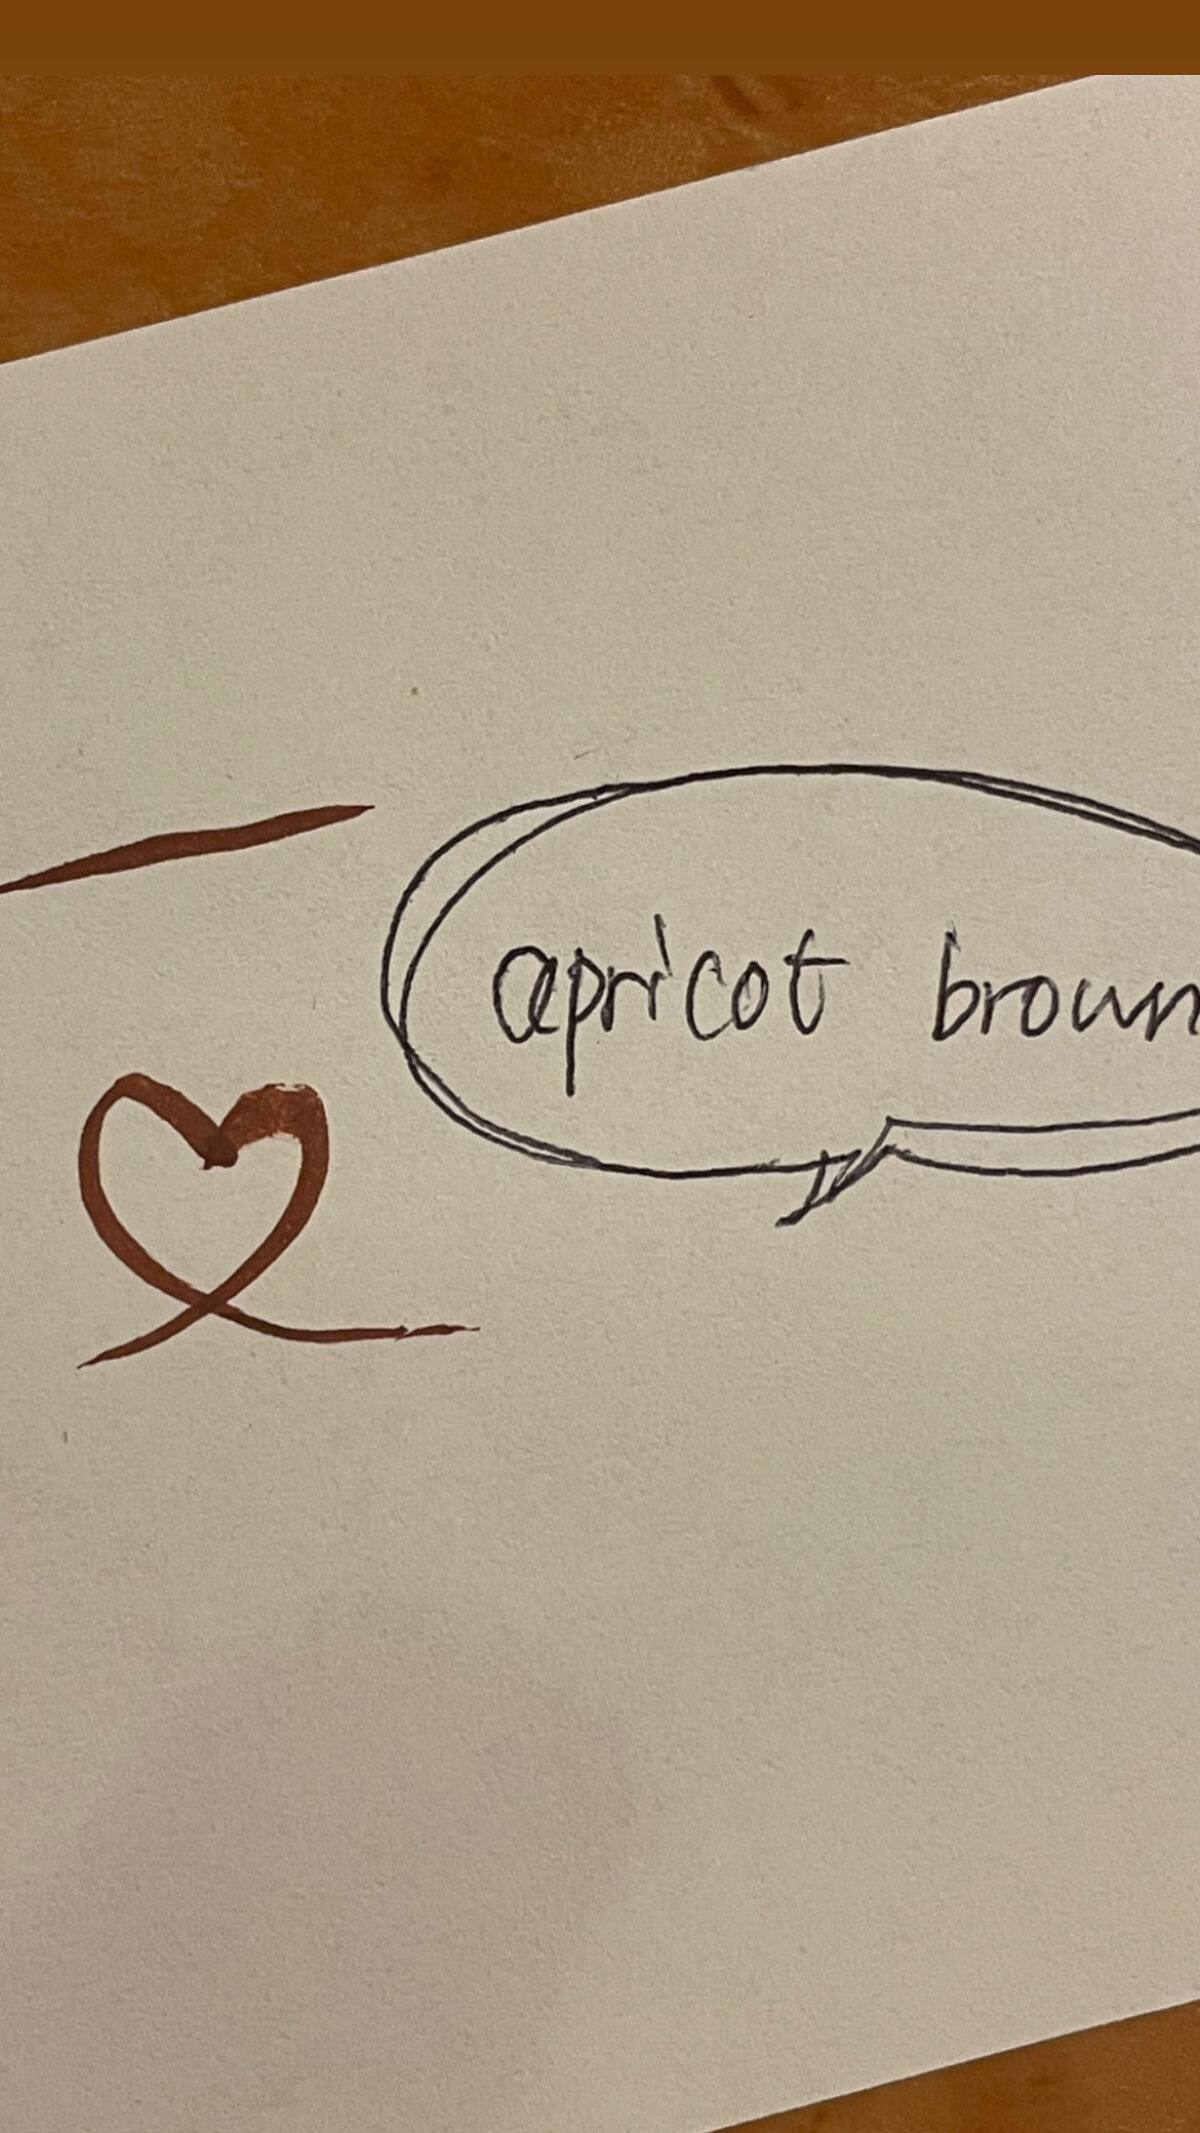 apricot brown